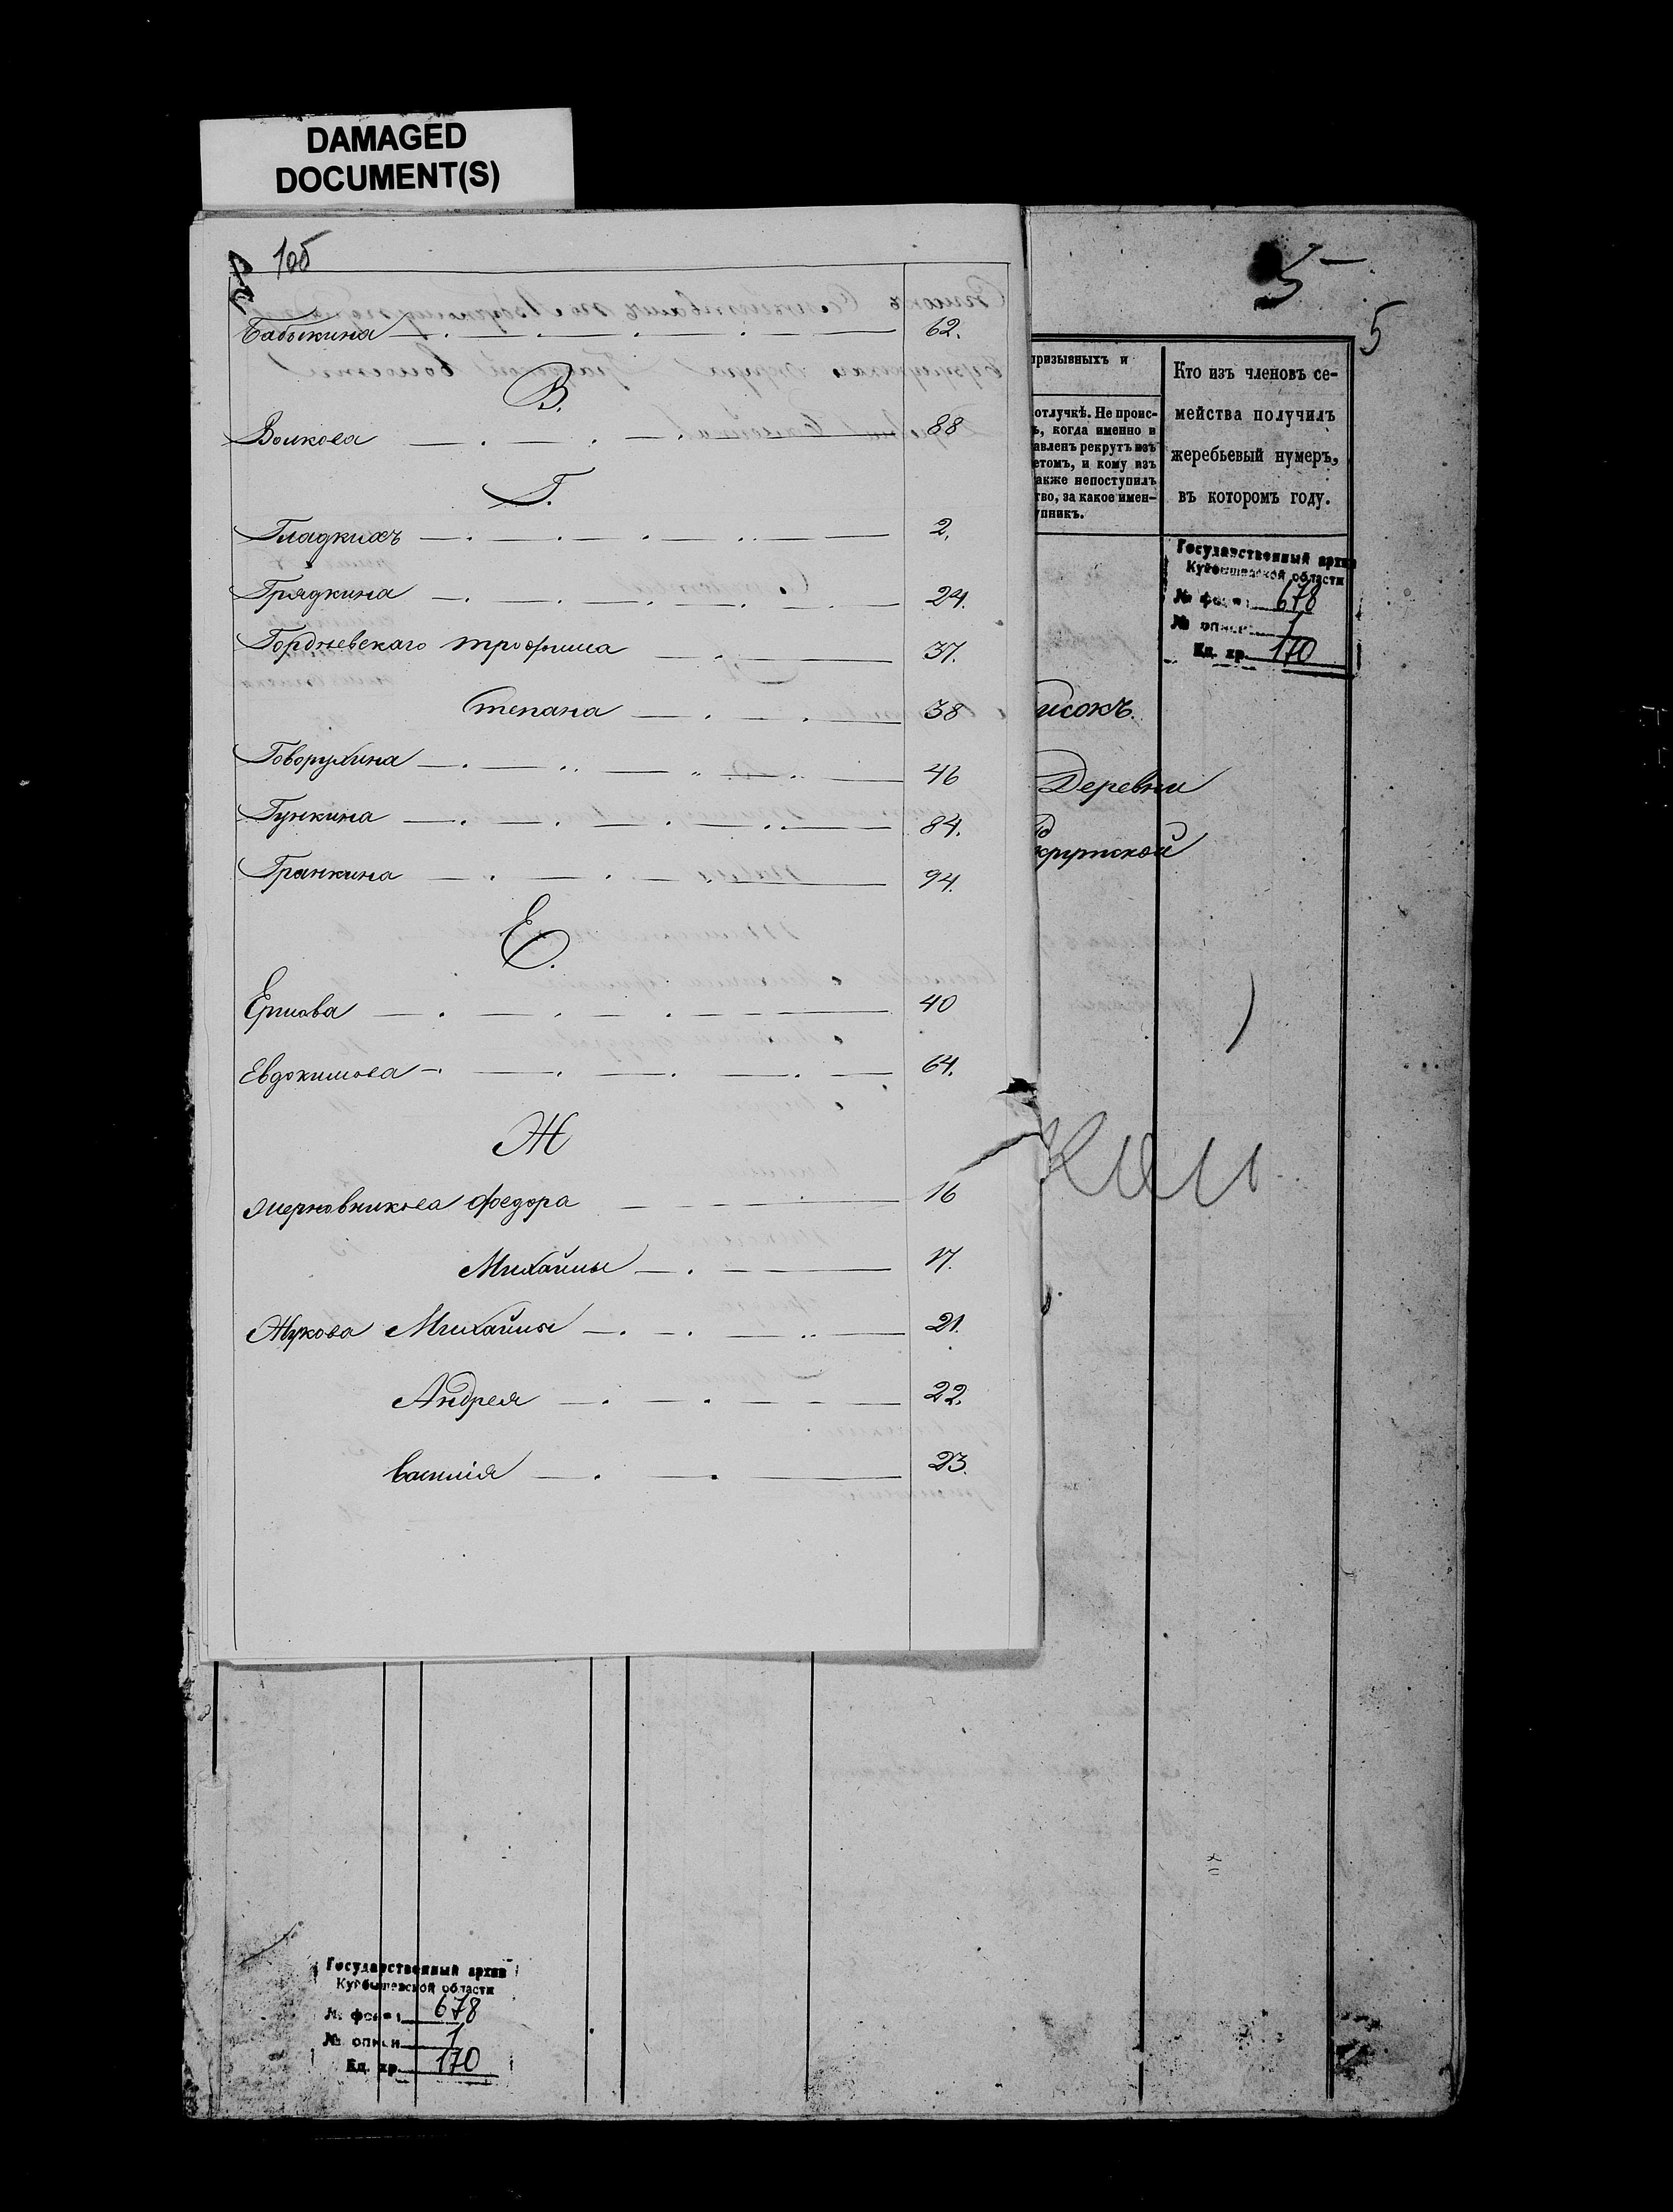 DAMAGED
DOCUMENT(S)
105
Бабыкина 62.
В.
Волкова 88
Г.
Гладкихъ 2.
Грядкина 24.
Гордѣевскаго Трофима 37.
Степана 38
Говорухина 46
Гункина 84.
Гранкина 94.
Е.
Ершова 40
Евдокимова 64.
Ж
Жерновникова Федора 16
Михайлы 17.
Жукова Михайлы 21.
Андрея 22.
Василія 23.
5
5
призывныхъ и
отлучкѣ. Не проис-
ь, когда именно и
авленъ рекрутъ изъ
етомъ, и кому изъ
акже непоступилъ
тво, за какое имен-
упникъ.
Кто изъ членовъ се-
мейства получилъ
жеребьевый нумеръ,
въ которомъ году.
Государственный архив
Куйбышевской области
№ фонда 678
№ описи 1
Ед. хр. 170
исокъ.
Деревни
крутской
Государственный архив
Куйбышевской области
№ фонда 678
№ описи 1
Ед. хр. 170